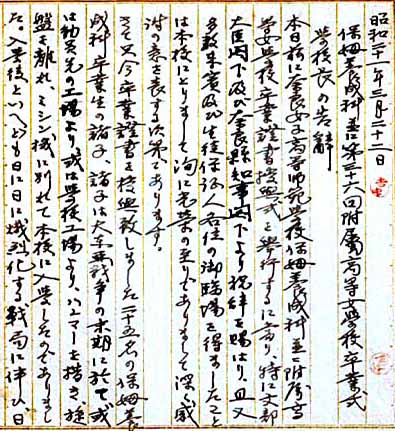 昭和二十一年三月二十二日
保姆養成科並に第三十六回附属高等女学校卒業式
学校長の告辞
本日茲に奈良女子高等師範学校保姆養成科並に附属高
等女学校卒業證書授與式を挙行するに当り、特に文部
大臣閣下及び奈良縣知事閣下より祝辞を賜はり、且又
多数来賓及び生徒保証人各位の御臨場を得ましたこと
は本校にとりまして洵に光栄の至りでありまして深く感
謝の意を表する次第であります。
さて只今卒業證書を授與致しました二十五名の保姆養
成科卒業生の諸子、諸子は大東亜戦争の末期に於て或
は動員先の工場より、或は学校工場より、ハムマーを措き、旋
盤を離れ、ミシン機に別れて本校に入学したのでありまし
た。入学後といへども日に日に熾烈化する戦局に伴ひ、日